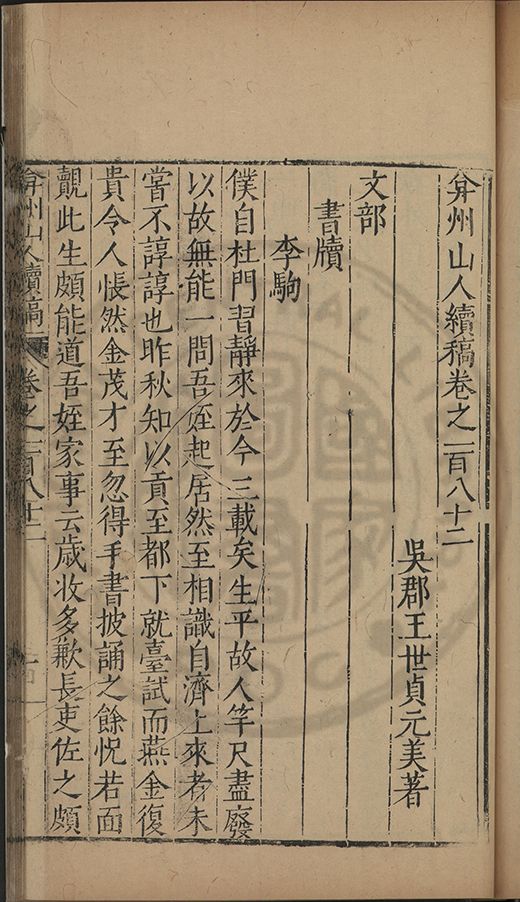 弇州山人續稿卷之一百八十二
吳郡王世貞元美著
文部
書牘
李駒
僕自杜門習靜來於今三載矣生平故人竿尺盡廢
以故無能一問吾姪起居然至相識自濟上來者未
嘗不諄諄也昨秋知以貢至都下就臺試而燕金復
貴令人悵然金茂才至忽得手書披誦之餘恍若面
覿此生頗能道吾姪家事云歳收多歉長吏佐之頗
弇州山人續稿 卷之一百八十二